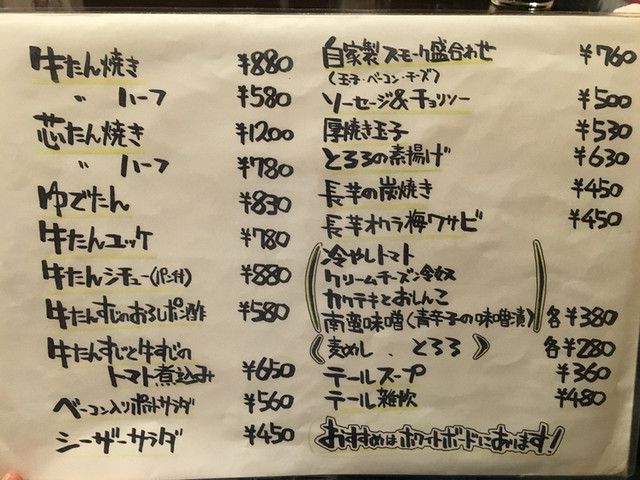 牛たん焼き ¥880
〃 ハーフ ¥580
芯たん焼き ¥1200
〃 ハーフ ¥780
ゆでたん ¥830
牛たんユッケ ¥780
牛たんシチュー(パン付) ¥880
牛たんすじのおろしポン酢 ¥580
牛たんすじと牛すじの
トマト煮込み ¥650
ベーコン入りポテトサラダ ¥560
シーザーサラダ ¥450
自家製スモーク盛合わせ ¥760
(玉子・ベーコン・チーズ)
ソーセージ&チョリソー ¥500
厚焼き玉子 ¥530
とろろの素揚げ ¥630
長芋の炭焼き ¥450
長芋オクラ梅ワサビ ¥450
冷やしトマト
クリームチーズ冷奴
カクテキとおしんこ
南蛮味噌(青辛子の味噌漬) 各¥380
麦めし、とろろ 各¥280
テールスープ ¥360
テール雑炊 ¥480
おすすめはホワイトボードにあります!